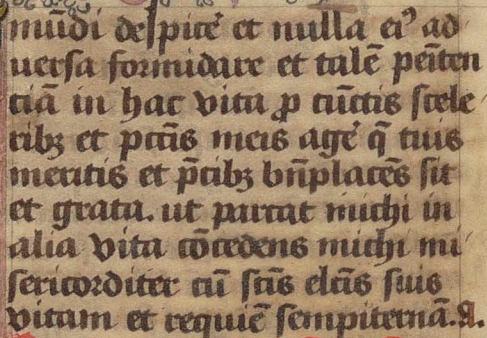 mūdi despicē et nulla eiꝰ ad
uersa formidare et talē peīten
ciā in hac vita ꝓ cūctis scele
ribꝫ et pctīs meis agē q̄ tuis
meritis et p̄cibꝫ bn̄placēs sit
et grata. ut parcat michi in
alia vita cōcedens michi mi
sericorditer cū sctīs elctīs suis
vitam et requiē sempiternā. A.